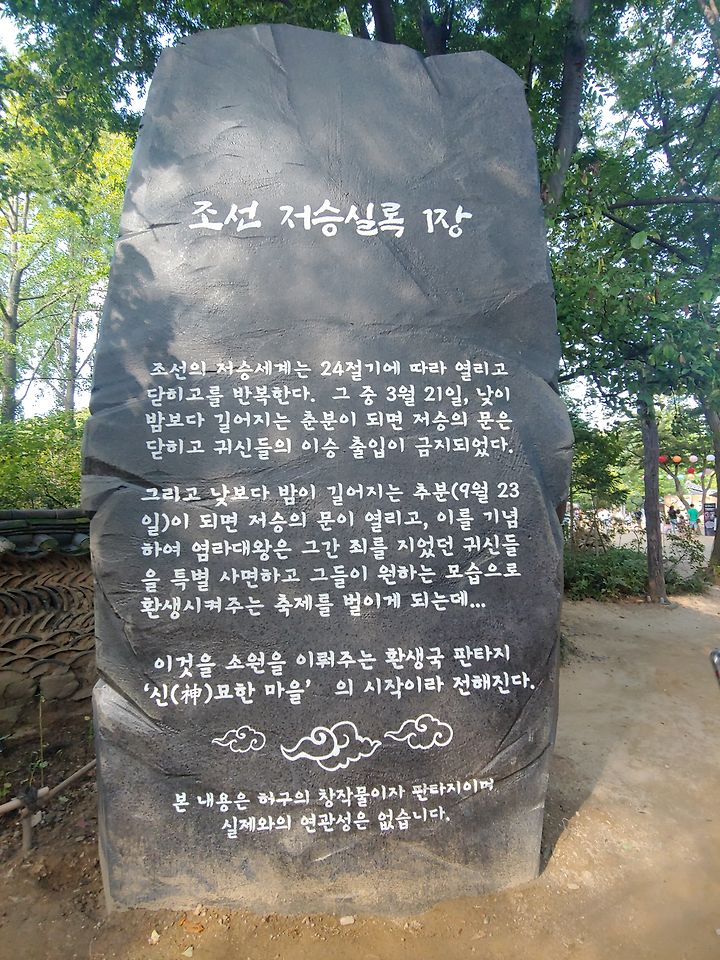 조선 저승실록 1장
조선의 저승세계는 24절기에 따라 열리고
닫히고를 반복한다. 그 중 3월 21일, 낮이
밤보다 길어지는 춘분이 되면 저승의 문은
닫히고 귀신들의 이승 출입이 금지되었다.
그리고 낮보다 밤이 길어지는 추분(9월 23
일)이 되면 저승의 문이 열리고, 이를 기념
하여 염라대왕은 그간 죄를 지었던 귀신들
을 특별 사면하고 그들이 원하는 모습으로
환생시켜주는 축제를 벌이게 되는데...
이것을 소원을 이뤄주는 환생국 판타지
‘신(神)묘한 마을’ 의 시작이라 전해진다.
본 내용은 허구의 창작물이자 판타지이며
실제와의 연관성은 없습니다.